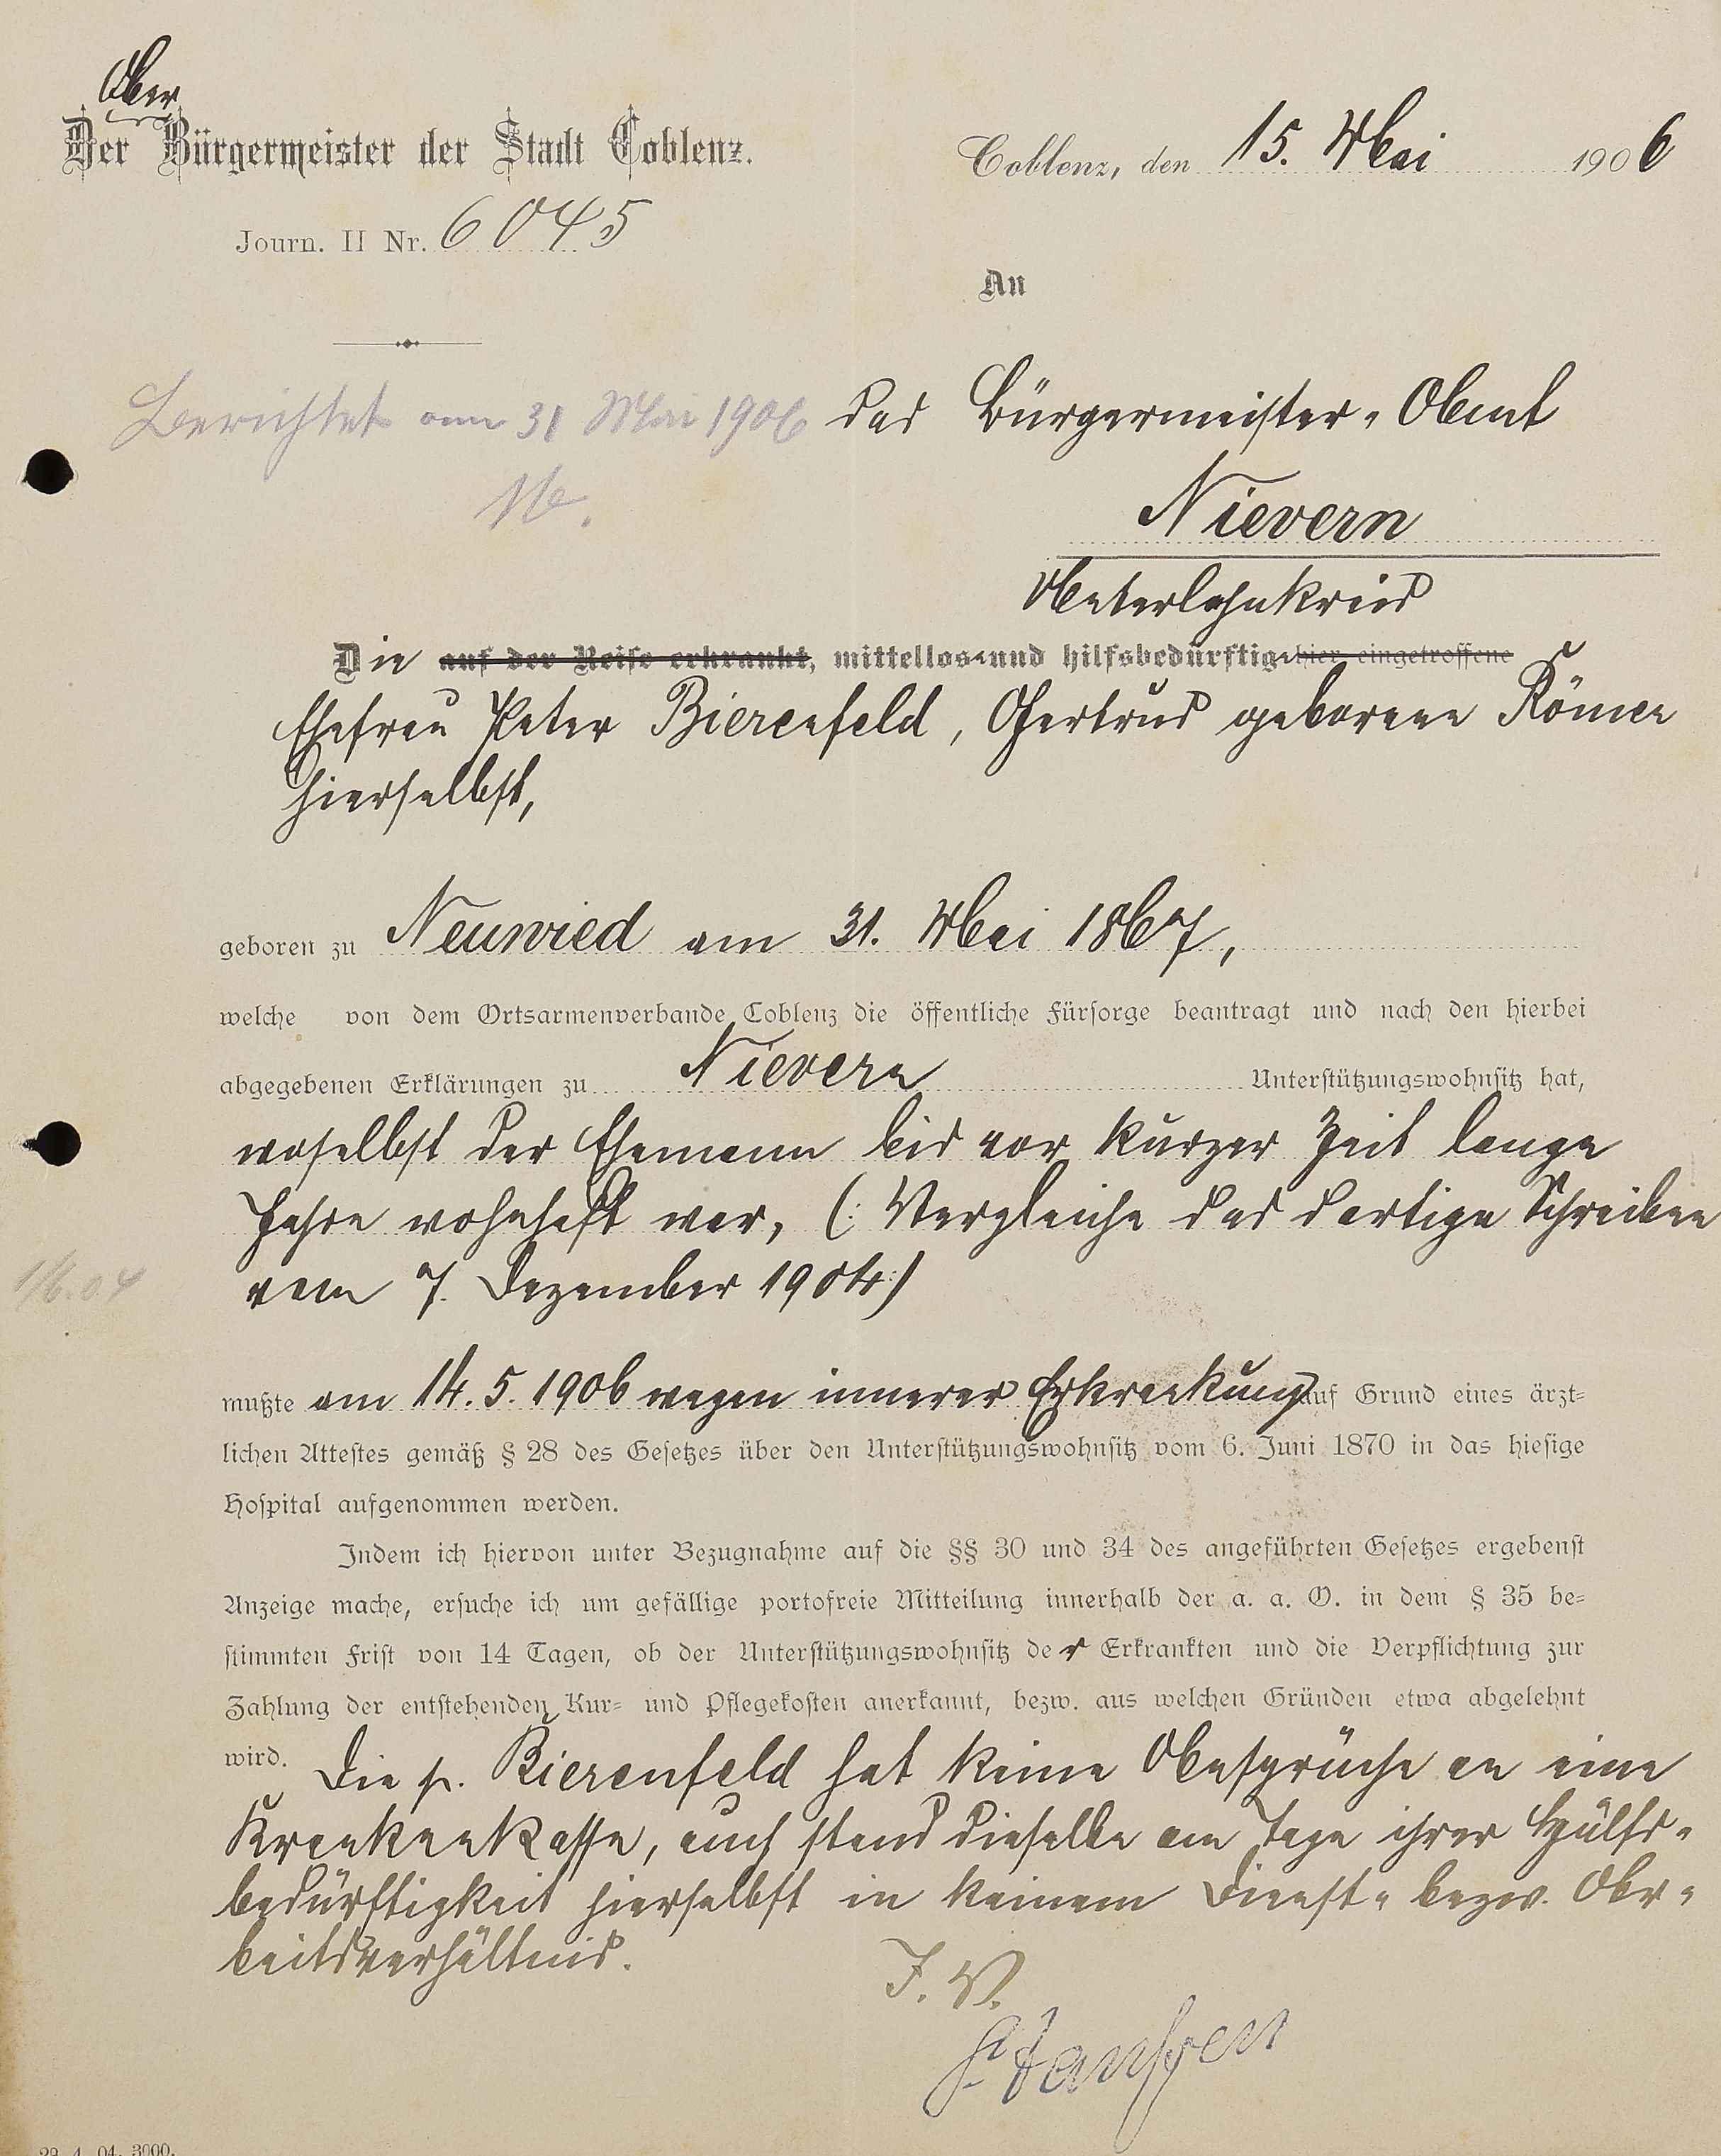 Ober
Der Bürgermeister der Stadt Coblenz.
Coblenz, den 15. Mai 1906
Journ. II Nr. 6045
An
Berichtet am 31 Mai 1906
das Bürgermeister-Amt
Nievern
Unterlahnkreis
Die auf der Reise erkrankt, mittellos und hilfsbedürftig hier eingetroffene
Ehefrau Peter Bierenfeld, Gertrud geborene Römer
hierselbst,
geboren zu Neuwied am 31. Mai 1867,
welche von dem Ortsarmenverbande Coblenz die öffentliche Fürsorge beantragt und nach den hierbei
abgegebenen Erklärungen zu Nievern Unterstützungswohnsitz hat,
woselbst der Ehemann bis vor kurzer Zeit lange
Jahre wohnhaft war, (: Vergleiche das dortige Schreiben
vom 7. Dezember 1904:)
1/6.04
mußte am 14. 5. 1906 wegen innerer Erkrankung auf Grund eines ärzt-
lichen Attestes gemäß § 28 des Gesetzes über den Unterstützungswohnsitz vom 6. Juni 1870 in das hiesige
Hospital aufgenommen werden.
Indem ich hiervon unter Bezugnahme auf die §§ 30 und 34 des angeführten Gesetzes ergebenst
Anzeige mache, ersuche ich um gefällige portofreie Mitteilung innerhalb der a. a. O. in dem § 35 be-
stimmten Frist von 14 Tagen, ob der Unterstützungswohnsitz der Erkrankten und die Verpflichtung zur
Zahlung der entstehenden Kur- und Pflegekosten anerkannt, bezw. aus welchen Gründen etwa abgelehnt
wird. Die p. Bierenfeld hat keine Ansprüche an eine
Krankenkasse, auch stand dieselbe am Tage ihrer Hülfs-
bedürftigkeit hierselbst in keinem Dienst- bezw. Ar-
beitsverhältnis.
I. V.
29. 4. 04. 3000.